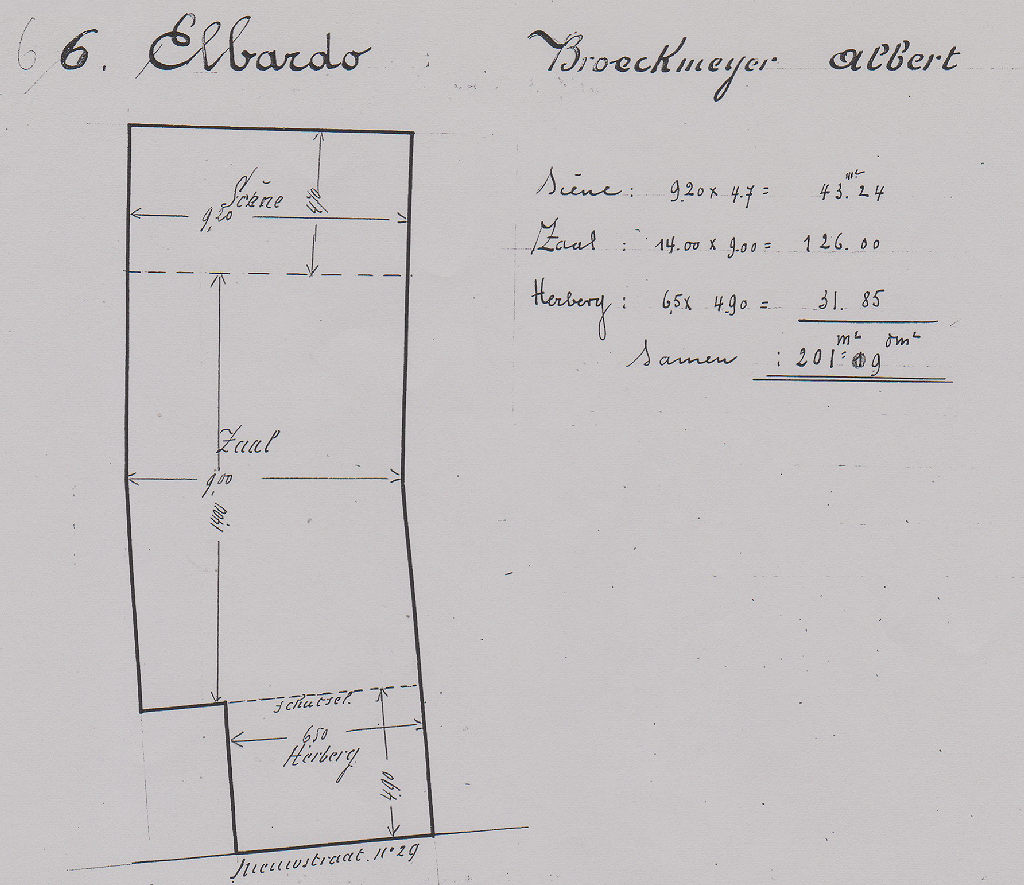 6 6. Elbardo
Broeckmeyer Albert
Scène
9,20
4,70
Zaal
9,00
14,00
Schutsel.
6,50
Herberg
4,90
Nieuwstraat. No 29
Scène: 9.20 x 4.7 = 43.24 m²
Zaal : 14.00 x 9.00 = 126.00
Herberg : 6,5 x 4.90 = 31.85
m² dm²
Samen : 201.09